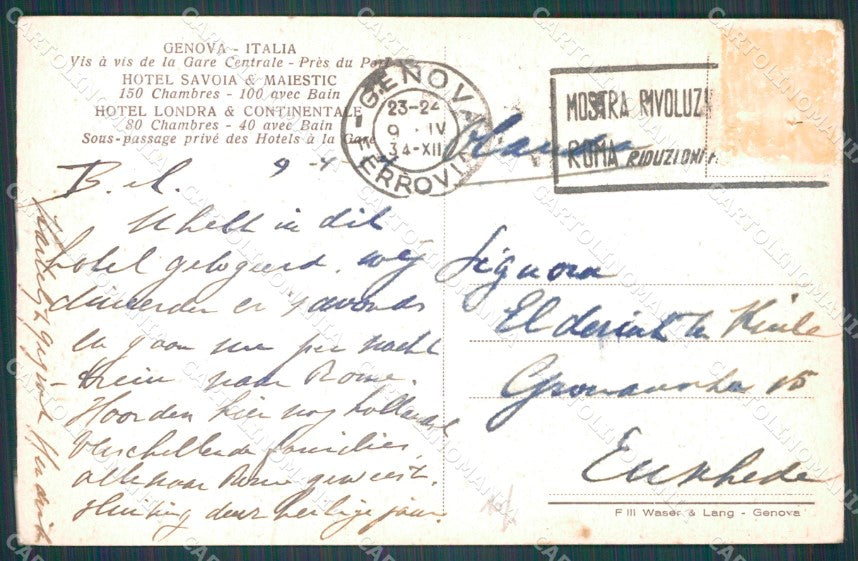 GENOVA - ITALIA
Vis à vis de la Gare Centrale - Près du Port
HOTEL SAVOIA & MAIESTIC
150 Chambres - 100 avec Bain
HOTEL LONDRA & CONTINENTALE
80 Chambres - 40 avec Bain
Sous-passage privé des Hotels à la Gare
GENOVA
23-24
9 · IV
34-XII
FERROVIA
MOSTRA RIVOLUZ
ROMA RIDUZIONI
Olanda
9 - 4
B. M.
U hebt in dit
hotel gelogeerd. wij
dineerden er 's avonds
en gaan nu per nacht
-trein naar Rome.
Hoorden hier nog holland
verschillende families,
alle naar Rome geweest.
sluiting deur heilige jaar.
Hartelijk gegroet
Signora
El
15
Enschede
F lli Waser & Lang - Genova
CARTOLINOMANIA